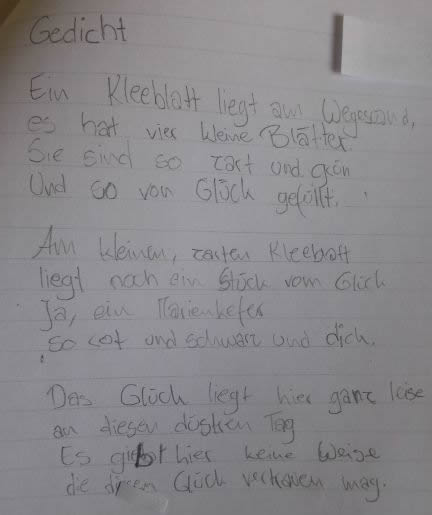 Gedicht
Ein Kleeblatt liegt am Wegesrand,
es hat vier kleine Blätter.
Sie sind so zart und grün
Und so von Glück gefüllt.
Am kleinen, zarten Kleebatt
liegt noch ein Stück vom Glück
Ja, ein Marienkefer
so rot und schwarz und dich.
Das Glück liegt hier ganz leise
an diesen düstren Tag
Es giebt hier keine Weise
die diesen Glück vertrauen mag.